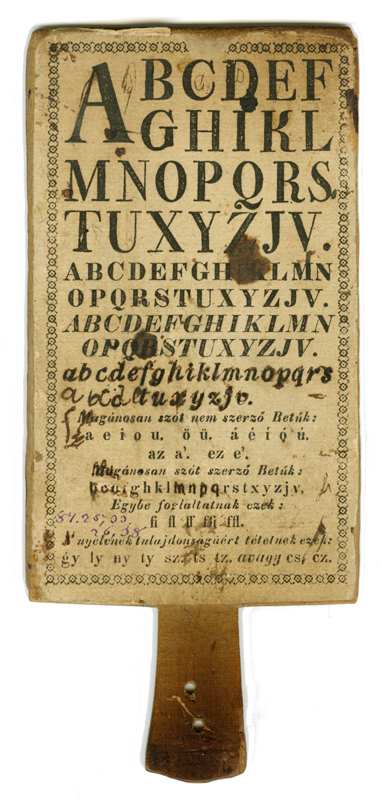 ABCDEF
GHIKL
MNOPQRS
TUXYZJV.
ABCDEFGHIKLMN
OPQRSTUXYZJV.
ABCDEFGHIKLMN
OPQRSTUXYZJV.
abcdefghiklmnopqrs
tuxyzjv.
Magánosan szót nem szerző Betűk:
a e i o u. ö ü. á é í ó ú.
az a'. ez e'.
Magánosan szót szerző Betűk:
ghklmnpqrstxyzjv.
Egybe foglaltatnak ezek:
fi fl ff ffi ffl.
A' nyelvnek tulajdonságáért tétetnek ezek:
gy ly ny ty sz ts tz. avagy cs, cz.